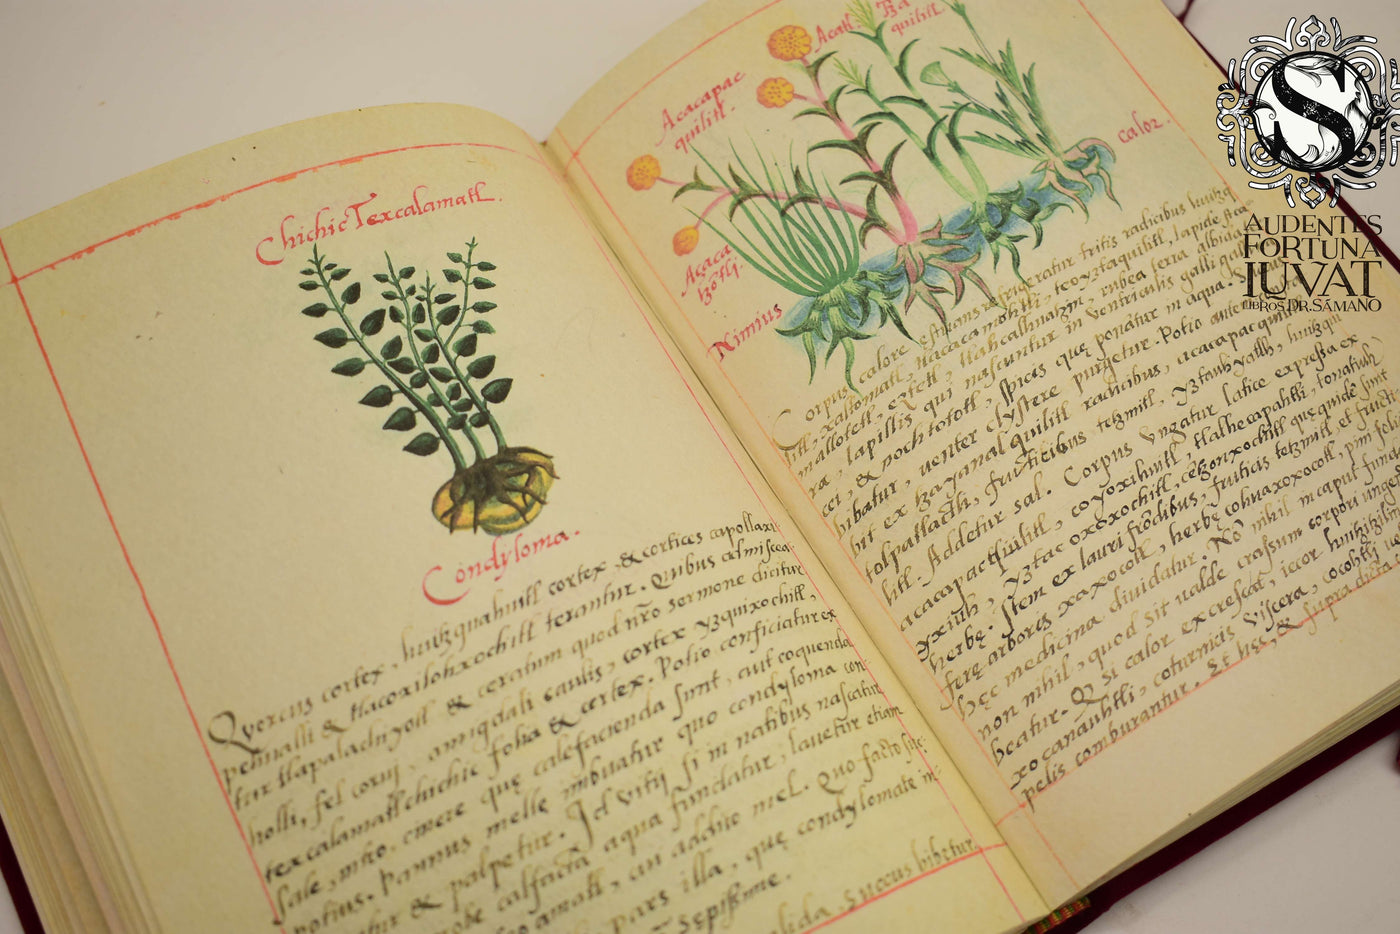 Chichic Texcalamatl.
Condyloma.
Quercus cortex, huitzquahuitl cortex, & cortices capollaxi-
pehualli & tlacoxilohxochitl terantur. Quibus admiscea-
tur tlapalachyotl & ceratum quod nr̃o sermone dicitur
holli, fel corui, amigdali caulis, cortex yzquixochitl,
texcalamatl chichic folia & cortex. Potio conficiatur ex
sale, nitro, cinere quę calefacienda sunt, aut coquenda
potius. Pannus melle imbuatur quo condyloma con-
& palpetur. Id vitij si in natibus nascatur
calfacta aqua fundatur, lauetur etiam
amatl, an addito mel. Quo facto suc-
pars illa, quę condylomate in-
sepissime.
succus bibetur.
Acacapac
quilitl.
Acatl.
Tza
quilitl.
Acaca
tzotli.
Nimius
calor.
Corpus calore ęstuans refrigeratur fritis radicibus huitzq
itl, xaltomatl, tlacacamohtli, teoyztaquilitl, lapide Aca-
mallotetl, eztetl, tlahcalhuatzin, rubea terra, albida
ra, lapillis qui nascuntur in ventriculis galli
cei, & nochtototl, spicis quę ponãtur in aqua.
bibatur, uenter clystere purgetur. Potio autem
bit ex tzayanalquilitl radicibus, acacapacqui
tolpatlactli, fruticibus tetzmitl, yztauhyattl, huitzqui
litl. Addetur sal. Corpus ungatur latice expressa ex
acacapacquilitl, coyoxihuitl, tlalhecapahtli, tonatiuh
yxiuh, yztac oxoxochitl, cetzonxochitl quę quidẽ sunt
herbę. Item ex lauri frõdibus, fruticis tetzmitl, et fructi-
ferę arboris xaxocotl, herbę cohuaxoxocotl, pim
hęc medicina diuidatur. Nõ nihil in caput funda
non nihil, quod sit ualde crassum corpori unge
beatur. Q si calor excrescat, iecor huihitzilin
xocanauhtli, coturnicis viscera, cocohtli
pelis comburantur. Et hęc, & supra dicta
S
AUDENTES
FORTUNA
IUVAT
LIBROS DR. SÁMANO